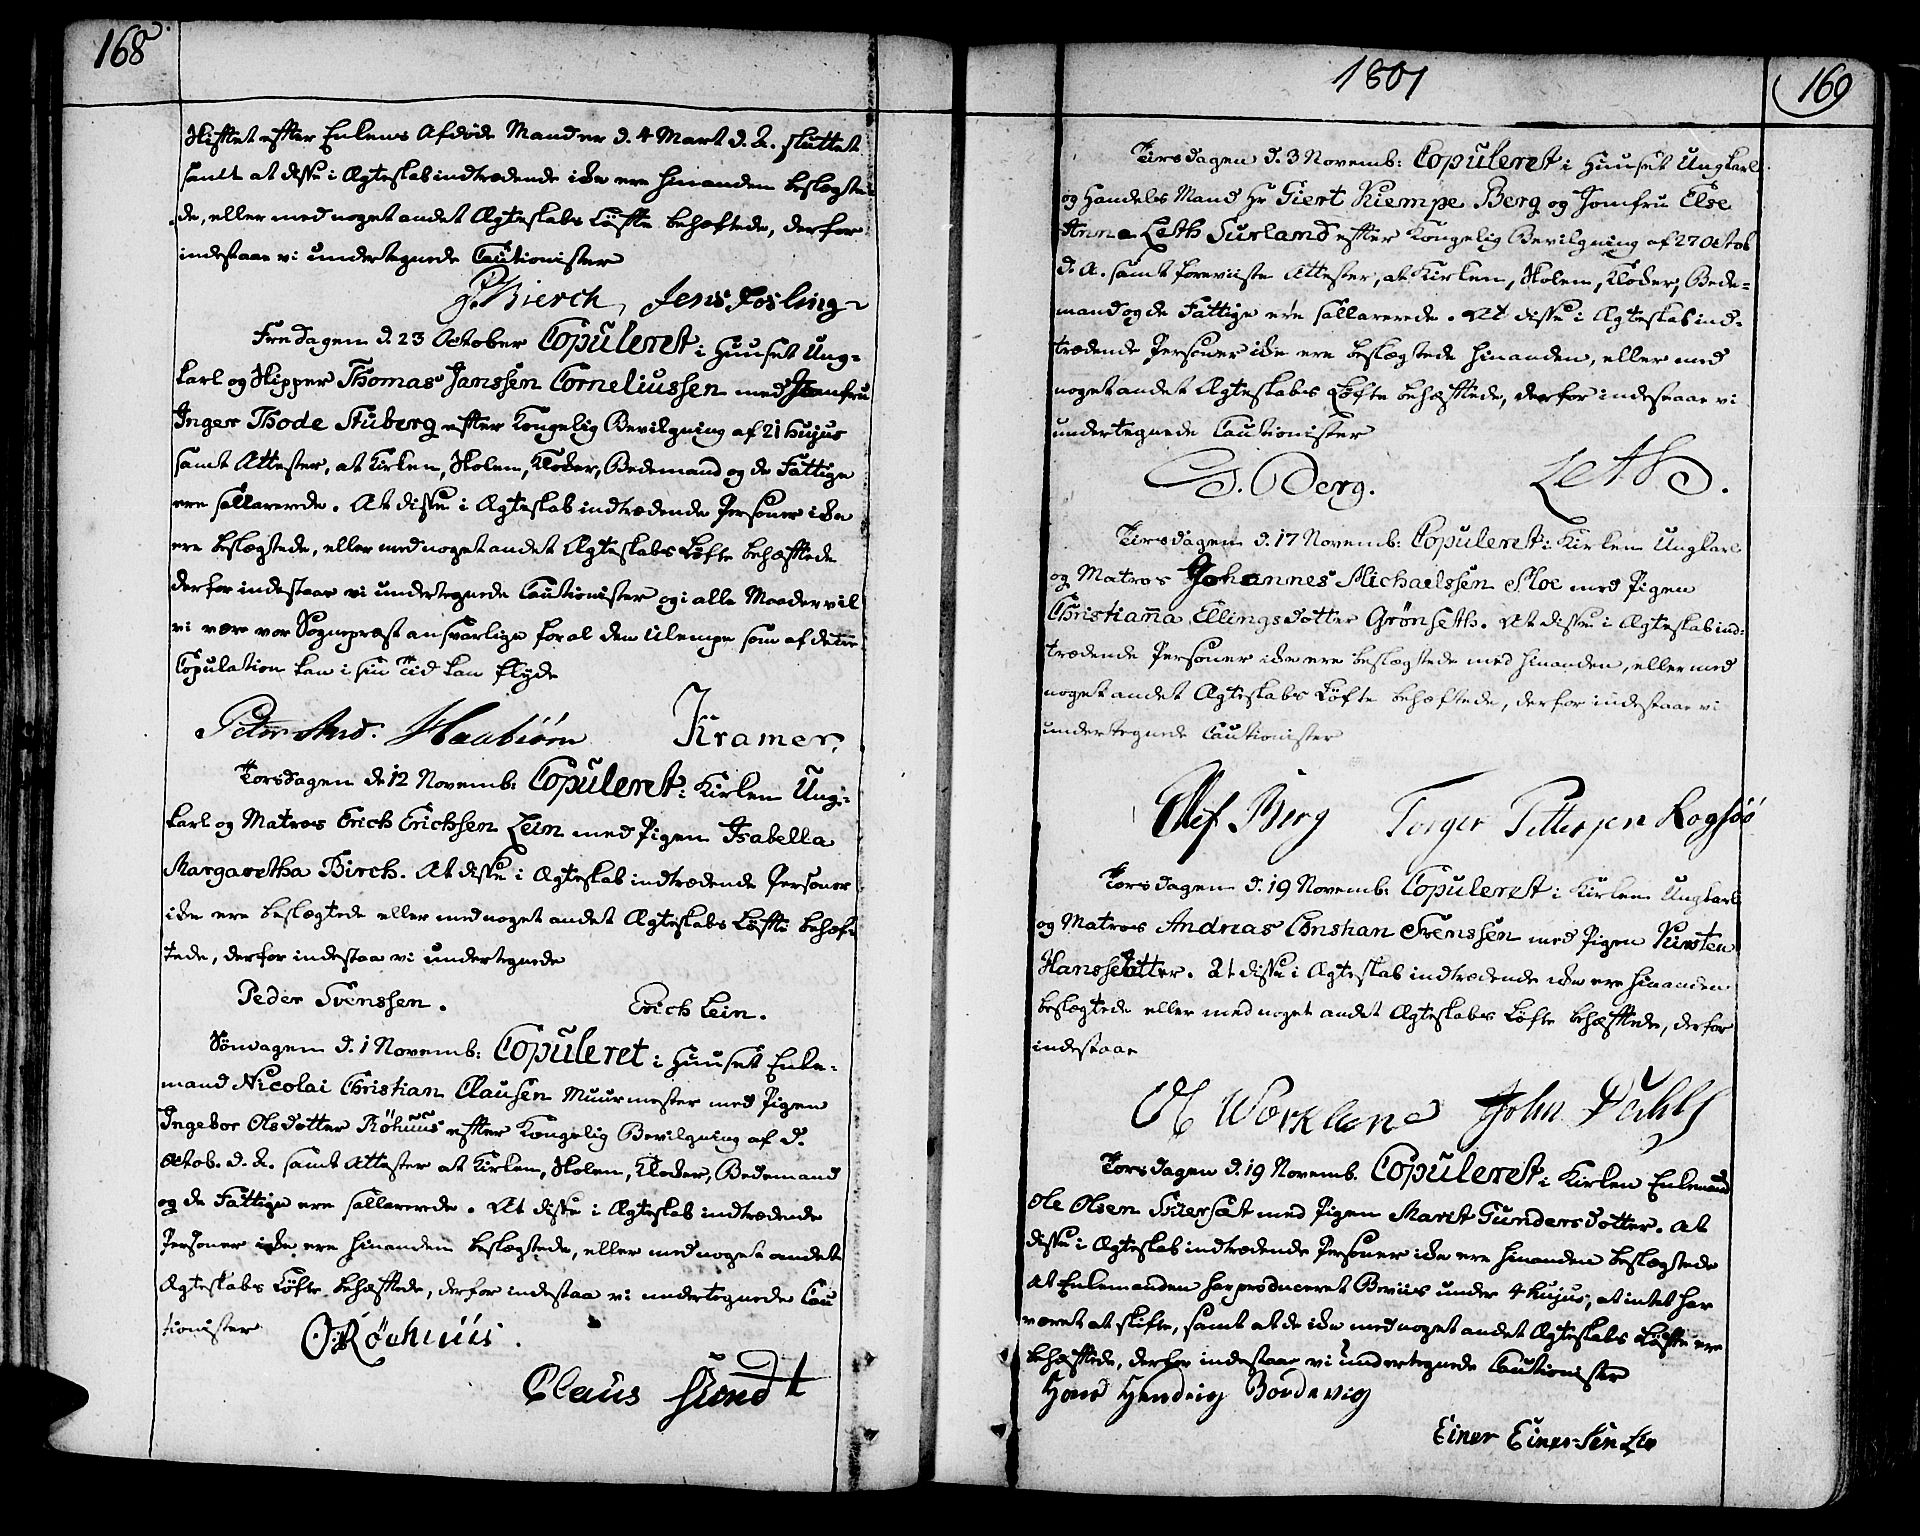 168
Skiftet efter Enkens Afdøde Mand er d. 4 Mart d. A. sluttet
samt at disse i Ægteskab indtrædende ikke ere hinanden beslægte-
de, eller med noget andet Ægteskabs Løfte behæftede, derfor
indestaae vi undertegnede Cautionister
Bierch, Jens Josling
Fredagen d. 23 October Copuleret i Huuset Ung-
karl og Skipper Thomas Janssen Corneliussen med Jomfru
Inger Thode Stuberg efter Kongelig Bevilgning af 21 hujus
samt Attester, at Kirken, Skolen, Kloker, Bedemand og de Fattige
ere sallarerede. At disse i Ægteskab indtrædende Personer ikke
ere beslægtede, eller med noget andet Ægteskabs Løfte behæfftede
derfor indestaae vi undertegnede Cautionister og i alle Maader vil
vi være vor Sognepræst ansvarlige for al den Ulempe som af dette
Copulation kan i sin Tid kan flyde
Peter And. Haabiörn Kramer,
Torsdagen d. 12 Novemb: Copuleret i Kirken Ung-
karl og Matros Erich Erichsen Lein med Pigen Isabella
Margaretha Birch. At disse i Ægteskab indtrædende Personer
ikke ere beslægtede eller med noget andet Ægteskabs Løffte behæf-
tede, derfor indestaa vi undertegnede
Peder Svenssen. Erich Lein.
Søndagen d. 1 Novemb: Copuleret i Huuset Enke-
mand Nicolai Christian Clausen Muurmester med Pigen
Ingebor Olsdotter Röhuus efter Kongelig Bevilgning af d.
Octob. d. A. samt Attester at Kirken, Skolen, Kloker, Bedemand
og de Fattige ere sallarerede. At disse i Ægteskab indtrædende
Personer ikke ere hinanden beslægtede, eller med noget andet
Ægteskabs Løfte behæfftede, derfor indestaa vi undertegnede Cau
tionister O. Röehuus.
Claus Sundt
1801
169
Tirsdagen d. 3 Novemb: Copuleret i Huuset Ungkarl
og Handels Mand Hr Giert Kiempe Berg og Jomfru Else
Anna Leth Surland efter Kongelig Bevilgning af 27 Octob
d. A. samt foreviiste Attester, at Kirken, Skolen, Kloker, Bede-
mand og de Fattige ere sallarerede. At disse i Ægteskab ind-
trædende Personer ikke ere beslægtede hinanden, eller med
noget andet Ægteskabs Løfte behæfftede, derfor indestaae vi
undertegnede Cautionister
Berg. Leth.
Tirsdagen d. 17 Novemb: Copuleret i Kirken Ungkarl
og Matros Johannes Michaelssen Floe med Pigen
Christianna Ellingsdotter Grönseth. At disse i Ægteskab ind-
trædende Personer ikke ere beslægtede med hinanden, eller med
noget andet Ægteskabs Løfte behæftede, derfor indestaae vi
undertegnede Cautionister
Olef Berg Torger Pettersen Rogsöö
Torsdagen d. 19 Novemb: Copuleret i Kirken Ungkarl
og Matros Andreas Christian Svenssen med Pigen Kirsten
Hanssedatter. At disse i Ægteskab indtrædende ikke ere hinanden
beslægtede eller med noget andet Ægteskabs Løfte behæfftede, derfor
indestaae
Workland John Dahls
Torsdagen d. 19 Novemb. Copuleret i Kirken Enkemand
Ole Olsen med Pigen Marit Gundersdotter. At
disse i Ægteskab indtrædende Personer ikke ere hinanden beslægtede
At Enkemanden har produceret Beviis under 4 hujus, at intet har
været at skifte, samt at de ikke med noget andet Ægteskabs Løfte ere
behæfftede, derfor indestaae vi undertegnede Cautionister
Hendrig Bordevig
Einer Einersen Lie